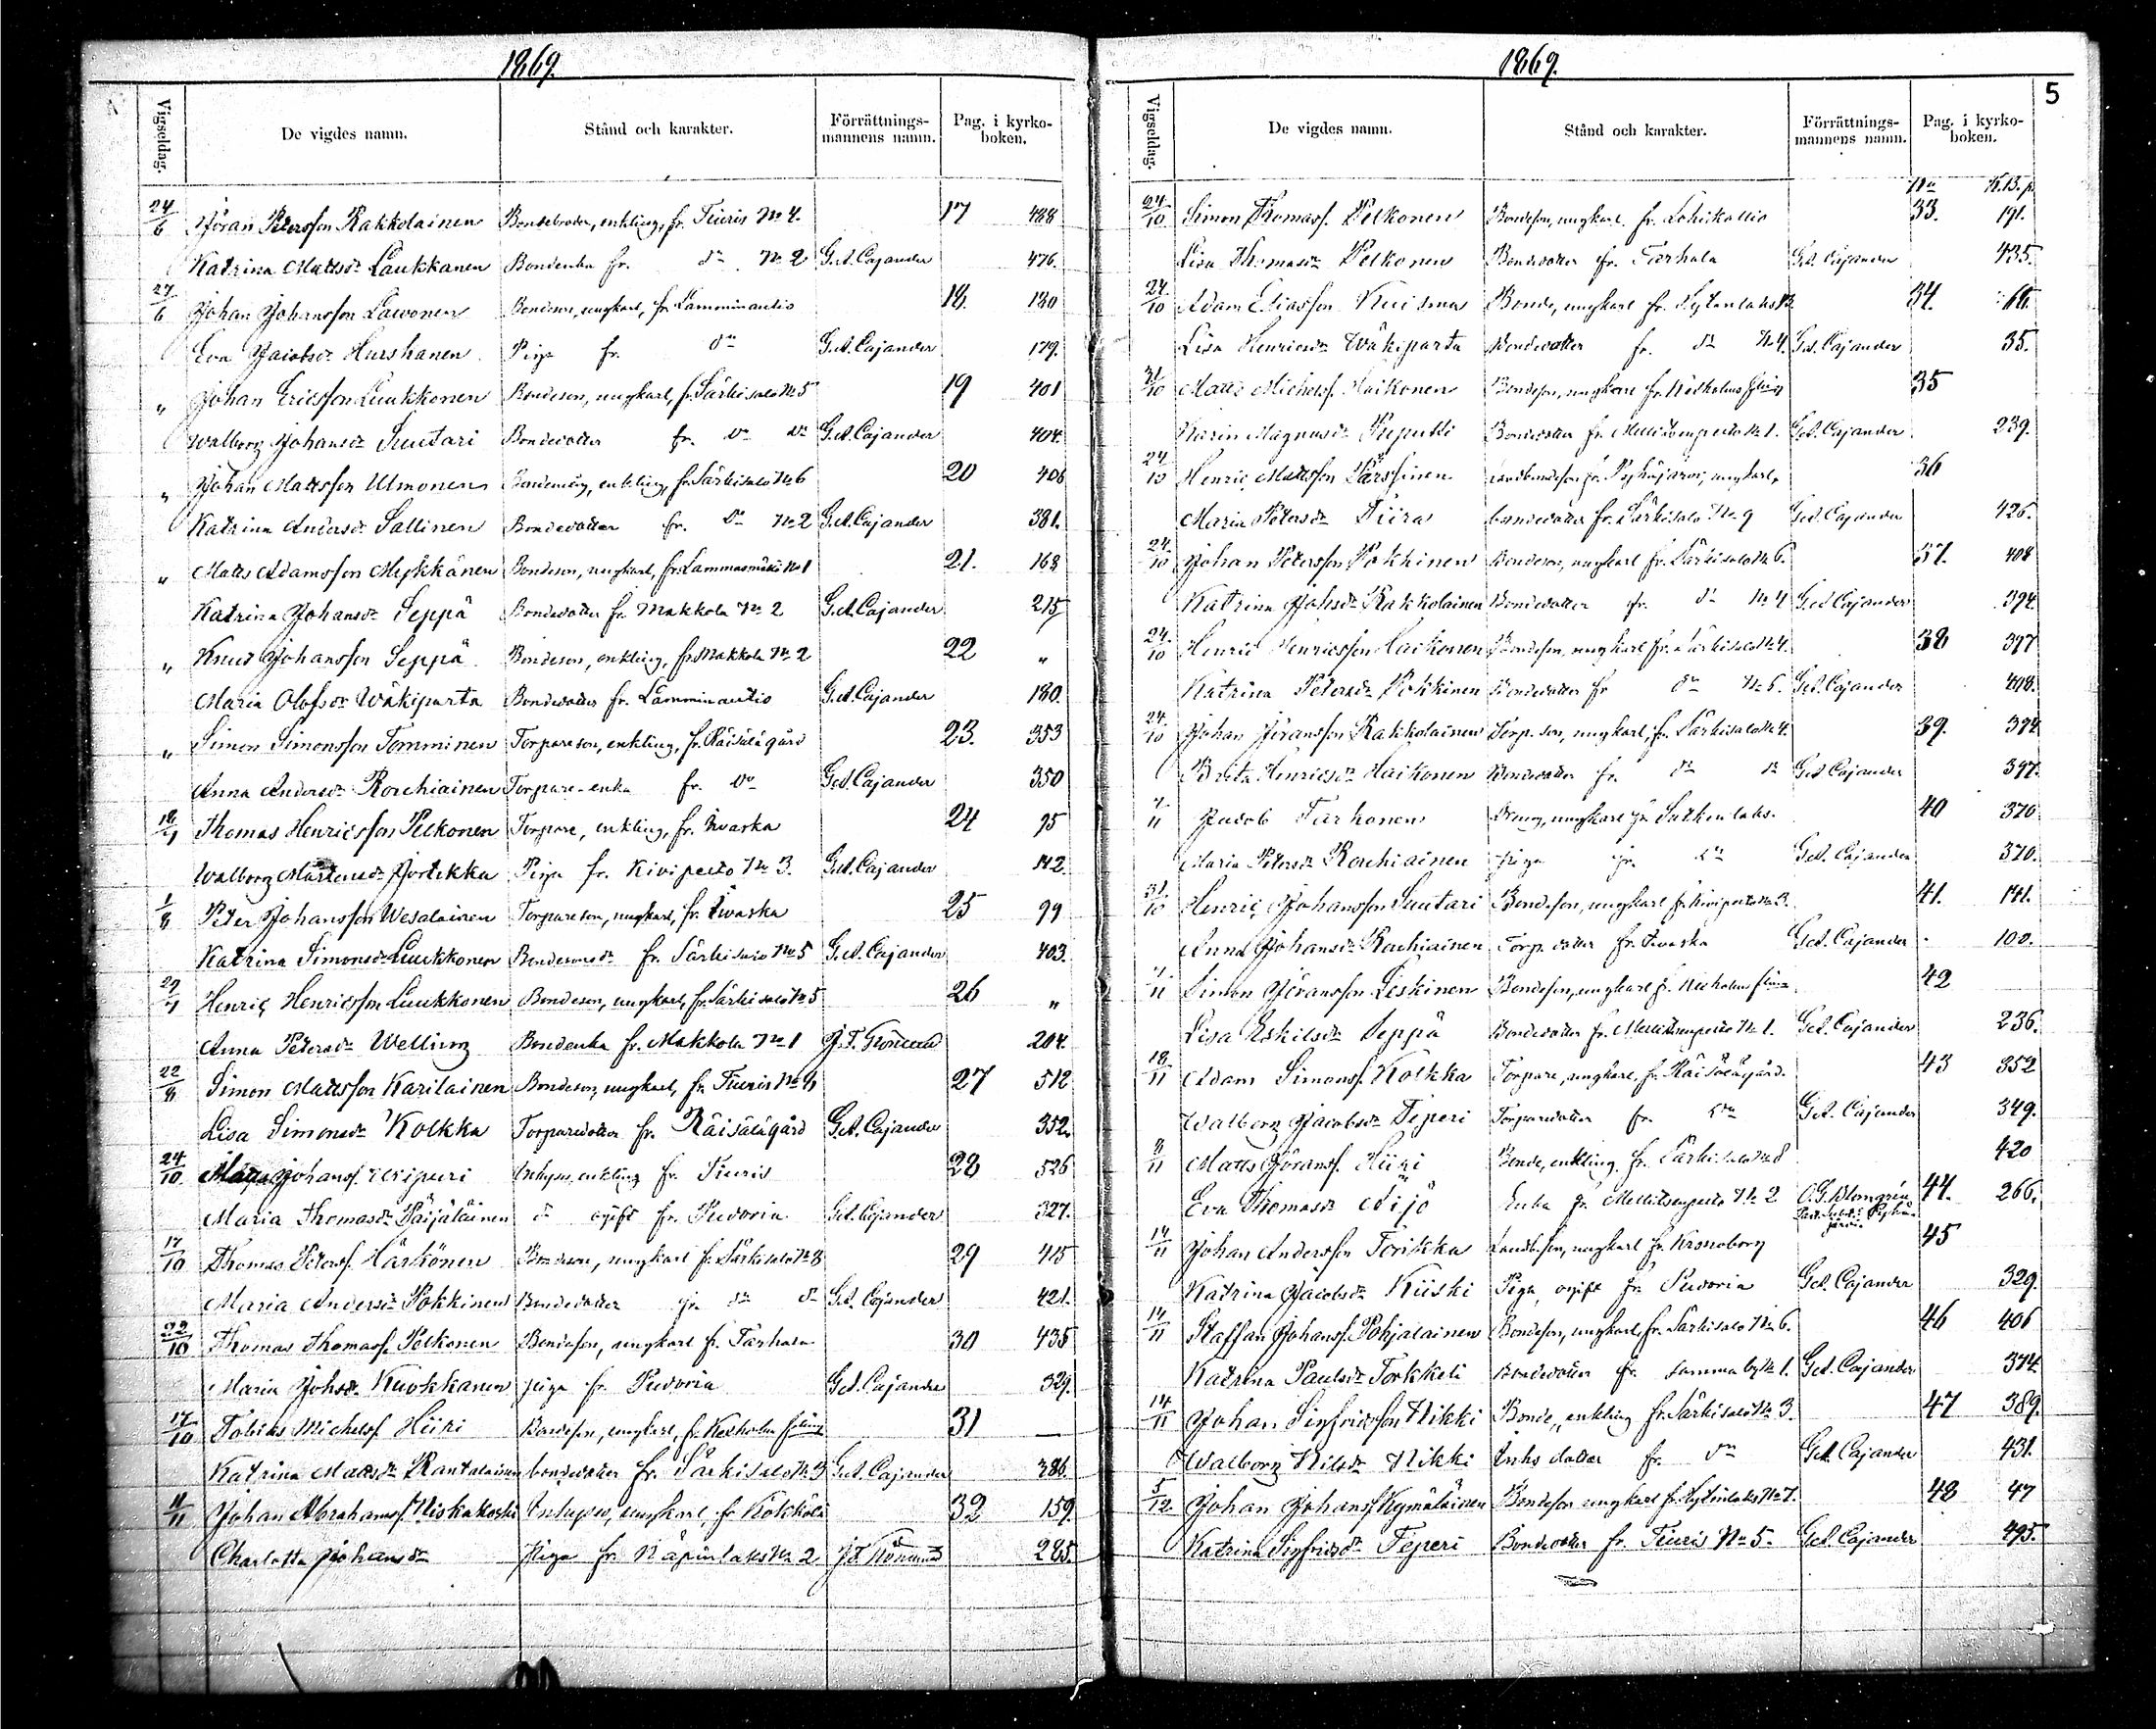 1869.
Vigseldag. De vigdes namn. Stånd och karakter. Förrättnings-mannens namn. Pag. i kyrko-boken.
24/6 Jöran Petersson Rakkolainen Bondebroder, enkling, fr. Tiuris No 4. 17 488
Katrina Mattsdr Laukkanen Bondenka fr. do No 2 G.A. Cajander 476.
27/6 Johan Johansson Lawonen Bondeson, ungkarl, fr. Lamminautio 18. 180
Eva Jacobsdr Hurskanen Piga fr. do G.A. Cajander 179.
" Johan Ericsson Luukkonen Bondeson, ungkarl, fr. Särkisalo No 5 19 401
Walborg Johansdr Suutari Bondedotter fr. do do G.A. Cajander 404.
" Johan Mattsson Ulmonen enkling, fr. Särkisalo No 6 20 408
Katrina Andersdr Sallinen Bondedotter fr. do No 2 G.A. Cajander 381.
" Matts Adamsson Mykkänen Bondeson, ungkarl, fr. Lammasmäki No 1 21. 168
Katrina Johansdr Seppä Bondedotter fr. Makkola No 2 G.A. Cajander 215
" Knut Johansson Seppä Bondeson, enkling, fr. Makkola No 2 22 "
Maria Olofsdr Wäkiparta Bondedotter fr. Lamminautio G.A. Cajander 180.
" Simon Simonsson Tomminen Torpareson, enkling, fr. Räisälägård 23. 353
Anna Andersdr Roschiainen Torpare-enka fr. do G.A. Cajander 350
18/7 Thomas Henricsson Pelkonen Torpare, enkling, fr. Ivaska 24 95
Walborg Mårtensdr Jortikka Piga fr. Kivipelto No 3. G.A. Cajander 142.
1/8 Peter Johansson Wesalainen Torpareson, ungkarl, fr. Ivaska 25 99
Katrina Simonsdr Luukkonen Bondesonsdr fr. Särkisalo No 5 G.A. Cajander 403.
29/7 Henric Henricsson Luukkonen Bondeson, ungkarl, fr. Särkisalo No 5 26 "
Anna Petersdr Welling Bondenka fr. Makkola No 1 J.F. Grönlund 204.
22/8 Simon Mattsson Karilainen Bondeson, ungkarl, fr. Tiuris No 9 27 512
Lisa Simonsdr Kolkka Torparedotter fr. Räisälägård G.A. Cajander 352.
24/10. Johanss. Wipuri Inhyses, enkling fr. Tiuris 28 526
Maria Thomasdr Päijäläinen do ogift fr. Pudoria G.A. Cajander 327.
17/10 Thomas Peterss. Härkönen Bondeson, ungkarl fr. Särkisalo No 8 29 415
Maria Andersdr Pokkinen Bondedotter fr. do do G.A. Cajander 421.
22/10 Thomas Thomass. Pelkonen Bondeson, ungkarl fr. Tarhala 30 435
Maria Johsdr Kuokkanen piga fr. Pudoria G.A. Cajander 329.
17/10 Tobias Michelss. Hiiri Bondeson, ungkarl, fr. Kexholms flms 31 —
Katrina Mattsdr Rantalainen bondedotter fr. Särkisalo No 3 G.A. Cajander 386.
11/11 Johan Abrahamss. Niskakoski Inhyses, ungkarl, fr. Kökköla 32 159.
Charlotta Johansdr piga fr. Näpinlaks No 2 J.F. Grönlund 285.

1869. 5
Vigseldag. De vigdes namn. Stånd och karakter. Förrättnings-mannens namn. Pag. i kyrko-boken.
No K.B.p.
24/10 Simon Thomass. Pelkonen Bondeson, ungkarl fr. Lohikallio 33. 191.
Lisa Thomasdr Pelkonen Bondedotter fr. Tarhala G.A. Cajander 435.
24/10 Adam Eliasson Kuisma Bonde, ungkarl fr. 34.
Lisa Henricsdr Wäkiparta Bondedotter fr. do No 4. G.A. Cajander 35.
31/10 Matts Michelss. Haikonen Bondeson, ungkarl fr. Kexholms flmg 35
Karin Magnusdr Puputti Bondedotter fr. Mellitsenpelto No 1. G.A. Cajander 239.
24/10 Henric Mattsson Pärssinen Landbondeson fr. Pyhäjärvi, ungkarl, 36
Maria Petersdr Tiira bondedotter fr. Särkisalo No 9 G.A. Cajander 426.
24/10 Johan Petersson Pokkinen Bondeson, ungkarl fr. Särkisalo No 6. 37. 408
Katrina Johsdr Rakkolainen Bondedotter fr. do No 4 G.A. Cajander 394.
24/10 Henric Henricsson Haikonen Bondeson, ungkarl fr. Särkisalo No 4. 38 397
Katrina Petersdr Pokkinen Bondedotter fr. do No 6. G.A. Cajander 408.
24/10 Johan Jöransson Rakkolainen Torp. son, ungkarl, fr. Särkisalo No 4. 39. 394
Brita Henricsdr Haikonen Bondedotter fr. do do G.A. Cajander 397.
7/11 Jacob Tarkonen Dreng, ungkarl fr. 40 370
Maria Petersdr Roschiainen piga fr. do G.A. Cajander 370.
31/10 Henric Johansson Suutari Bondeson, ungkarl fr. Kivipelto No 3. 41. 141.
Anna Johansdr Roschiainen Torp. dotter fr. Ivaska G.A. Cajander 100.
7/11 Simon Jöransson Leskinen Bondeson, ungkarl fr. Kexholms flmg 42
Lisa Eskilsdr Seppä Bondedotter fr. Mellitsenpelto No 1. G.A. Cajander 236.
18/11 Adam Simonss. Kolkka Torpare, ungkarl, fr. Räisälägård. 43 352
Walborg Jacobsdr Teperi Torparedotter fr. do G.A. Cajander 349.
9/11 Matts Jöranss. Hiiri Bonde, enkling, fr. Särkisalo No 8 420
Eva Thomasdr Äijö Enka fr. Mellitsenpelto No 2 O.G. Blomgrén 44. 266.
14/11 Johan Andersson Torikka Landb.son, ungkarl fr. Kronoborg 45
Katrina Jacobsdr Kiiski Piga, ogift fr. Pudoria G.A. Cajander 329.
14/11 Staffan Johanss. Pohjalainen Bondeson, ungkarl, fr. Särkisalo No 6. 46 406
Katrina Paulsdr Torkkeli Bondedotter fr. Samma by No 1. G.A. Cajander 374
14/11 Johan Sigfridsson Nikki Bonde, enkling fr. Särkisalo No 3. 47 389.
Walborg Nilsdr Nikki Inhs dotter fr. do G.A. Cajander 431.
5/12 Johan Johanss. Kymäläinen Bondeson ungkarl fr. No 7. 48 47
Katrina Sigfridsdr Teperi Bondedotter fr. Tiuris No 5. G.A. Cajander 495.
5